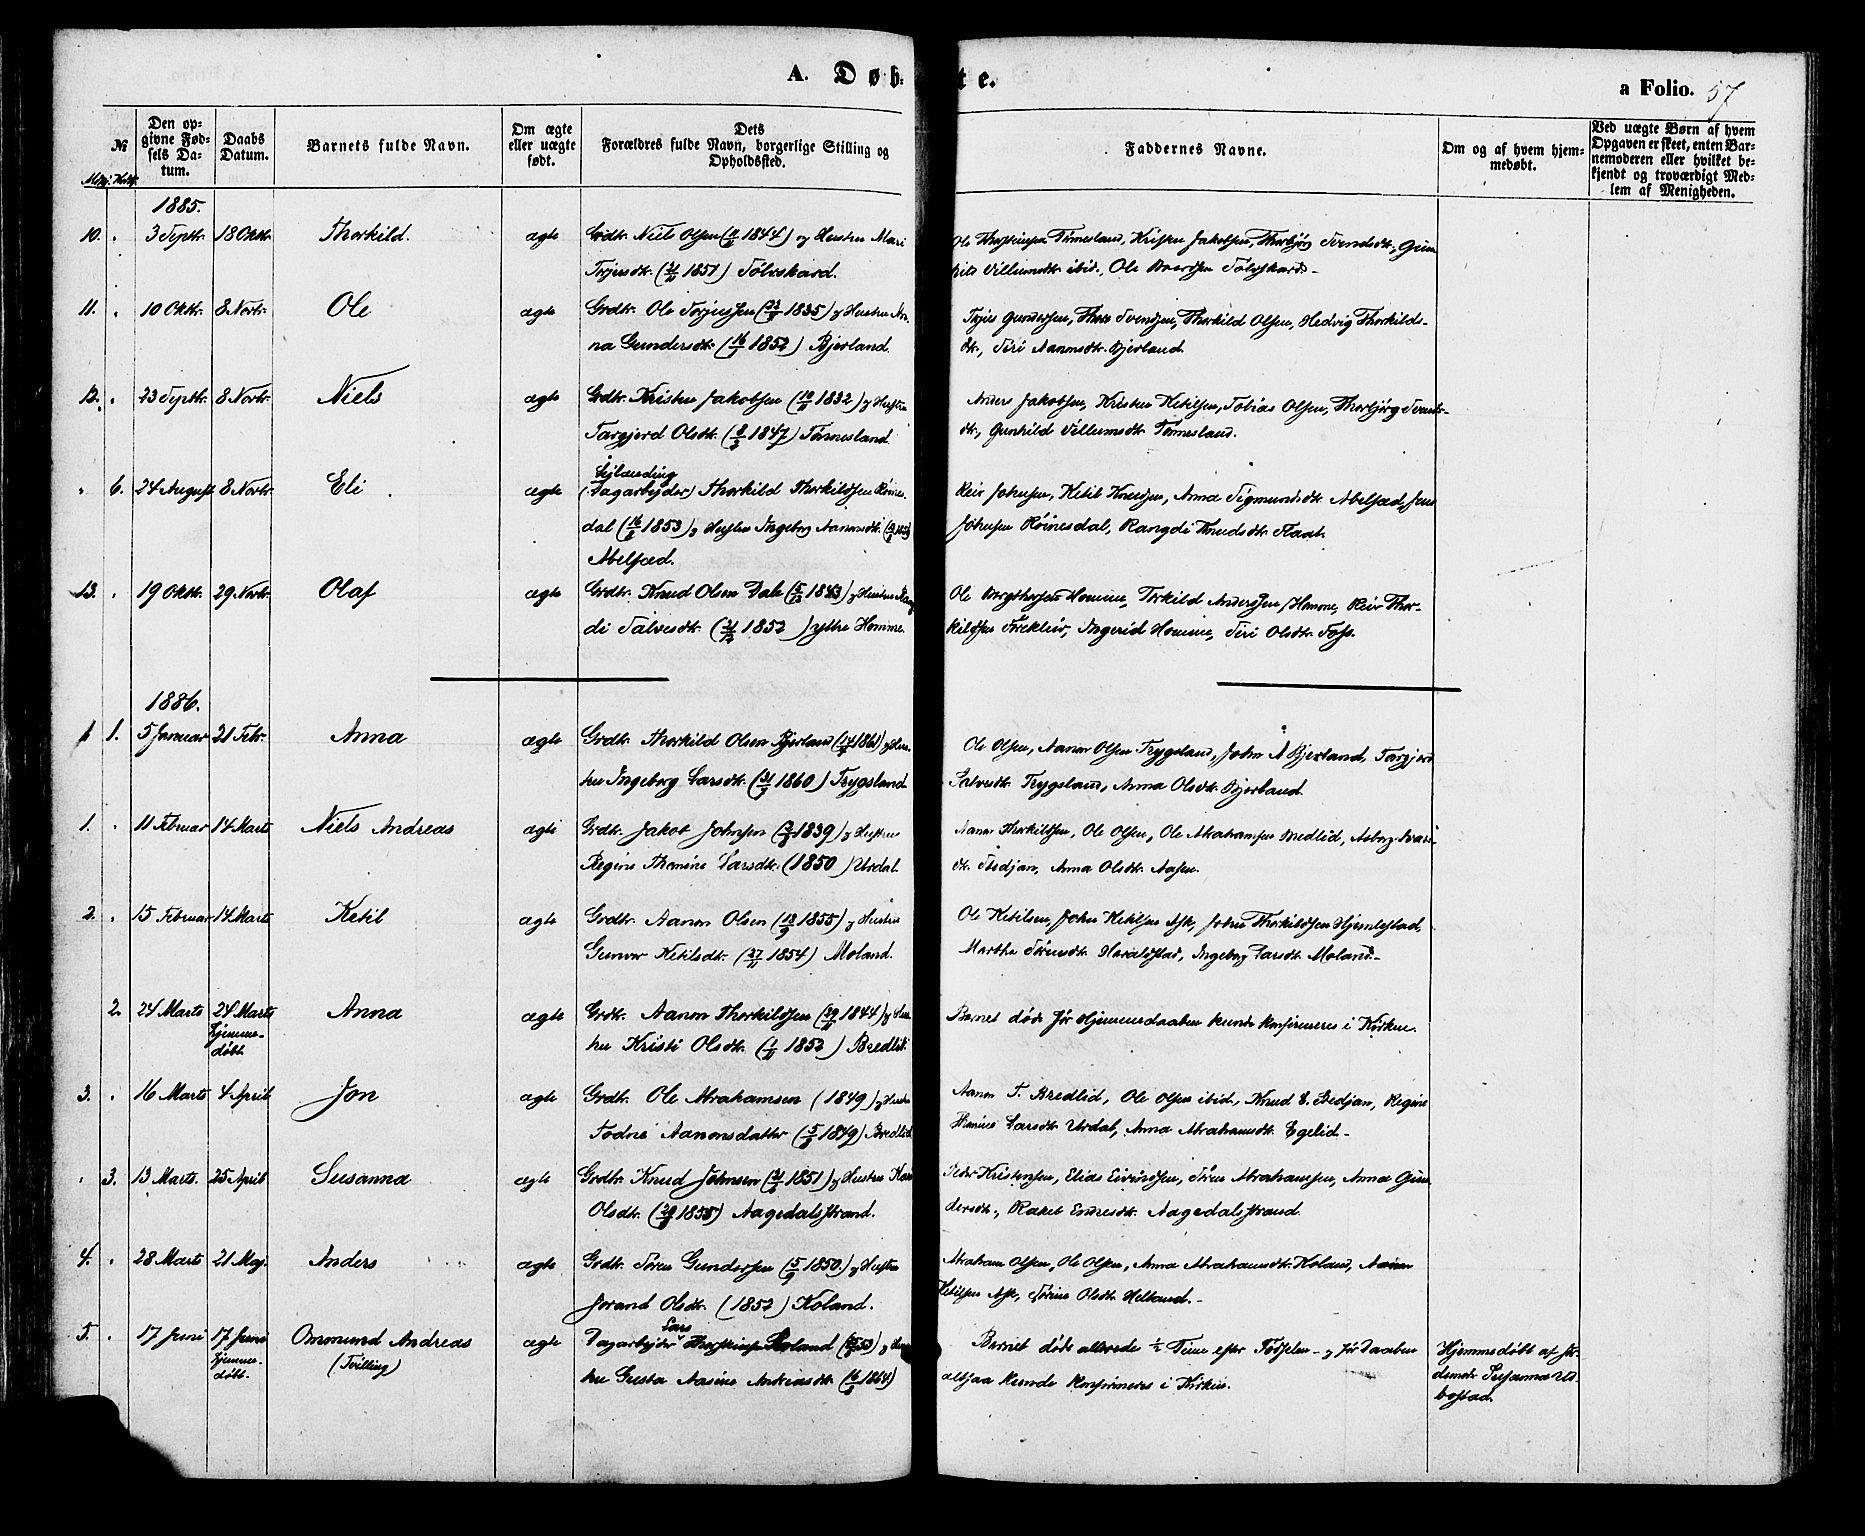 A. Døb-
te.
a Folio. 57
№
Mkj. Kvkj.
Den op-
givne Fød-
sels Da-
tum.
Daabs
Datum.
Barnets fulde Navn.
Om ægte
eller uægte
født.
Dets
Forældres fulde Navn, borgerlige Stilling og
Opholdssted.
Faddernes Navne.
Om og af hvem hjem-
medøbt.
Ved uægte Børn af hvem
Opgaven er skeet, enten Bar-
nemoderen eller hvilket be-
kjendt og troværdigt Med-
lem af Menigheden.
1885.
10. 3 Septr. 18 Oktr. Thorkild. ægte Grdbr. Niels Olsen 1844) og Hustru Mari
1851)
Ole Tønnesland, Kristen Jakobsen, Thorbjørg Svendsdtr., Gun-
hild Villumsdtr. ibid., Ole
11. 10 Oktr. 8 Novbr. Ole ægte Grdbr. Ole Torjussen 1835) og Hustru An-
na Gundersdtr. (16/5 1852) Bjerland.
Gundersen, Svendsen, Thorkild Olsen, Hedvig Thorkilds-
dtr., Siri Aanonsdtr. Bjerland.
12. 23 Septbr. 8 Novbr. Niels ægte Grdbr. Kristen Jakobsen 1832) og Hustru
Targjerd Olsdtr. 1847) Tønnesland
Anders Jakobsen, Kristen Ketilsen, Tobias Olsen, Thorbjørg Svends-
dtr., Gunhild Villumsdtr. Tønnesland.
6. 24 August 8 Novbr. Eli ægte (Dagarbejder) Thorkild Thorkildsen Røines-
dal 1853) og Hustru Ingeborg Aanonsdtr.
Abelsæd.
Reier Johnsen, Ketil Knudsen, Anna Sigmundsdtr. Abelsæd, Jens
Johnsen Røinesdal, Rangdi Knudsdtr.
13. 19 Oktr. 29 Novbr. Olaf ægte Grdbr. Knud Olsen Dale 1843) og Hustru Rang-
di Salvesdtr. 1852) yttre Homme.
Ole Homme, Torkild Anderssen Homme, Reier Thor-
kildsen Ingerid Homme, Siri Olsdtr. Foss.
1886.
1. 5 Januar 21 Febr. Anna ægte Grdbr. Thorkild Olsen Bjerland 1861) og Hus-
tru Ingeborg Larsdtr. 1860) Trygsland
Ole Olsen, Aanon Olsen Trygsland, John A Bjerland, Targjerd
Salvesdtr. Trygsland, Anna Olsdtr. Bjerland.
1. 11 Februar 14 Marts Niels Andreas ægte Grdbr. Jakob Johnsen 1839) og Hustru
Regine Thomine Larsdtr. (1850) Urdal.
Aanon Thorkildsen, Ole Olsen, Ole Abrahamsen Bredlid, Aasborg
dtr. Stedjan, Anna Olsdtr. Aasen.
2. 15 Februar 14 Marts Ketil ægte Grdbr. Aanon Olsen (18/9 1855) og Hustru
Gunvor Ketilsdtr. (27/11 1854) Moland.
Ole Ketilsen, John Ketilsen Ask, John Thorkildsen Hjemlestad,
Marthe Haraldstad, Ingeborg Larsdtr. Moland.
2. 24 Marts 24 Marts Anna ægte Grdbr. Aanon Thorkildsen 1844) og Hus-
hjemme-
døbt.
tru Kristi Olsdtr. 1852) Bredlid.
Barnet døde før Hjemmedaaben kunde konfirmeres i Kirken.
3. 16 Marts 4 April Jon ægte Grdbr. Ole Abrahamsen (1849) og Hustru
Todne Aanonsdatter 1849) Bredlid
Aanon T. Bredlid, Ole Olsen ibid., Knud Stedjan, Regine
Larsdtr. Urdal, Anna Abrahamsdtr. Egelid.
3. 13 Marts. 25 April Susanna ægte Grdbr. Knud Johnsen 1851) og Hustru Kari
Olsdtr. 1855) Aagedalsstrand.
Peder Kristensen, Elias Eivindsen, Søren Abrahamsen, Anna Gun-
dersdtr., Rakel Aagedalsstrand.
4. 28 Marts 21 Maj. Anders ægte Grdbr. Søren Gundersen (5/9 1850) og Hustru
Jorand Olsdtr. (1852) Koland.
Abraham Olsen, Ole Olsen, Anna Abrahamsdtr. Koland, Aanon
Ketilsen Ask, Olsdtr.
5. 17 Juni 17 Juni Ommund Andreas ægte Dagarbejder Lars
hjemme-
døbt.
(Tvilling)
tru Gusta Aasine Andreasdtr. 1864)
Barnet døde allerede ½ Time efter Fødselen og før Daaben
altsaa kunde konfirmeres i Kirken.
Hjemmedøbt af Jor-
demoder Susanna Ub-
bostad.